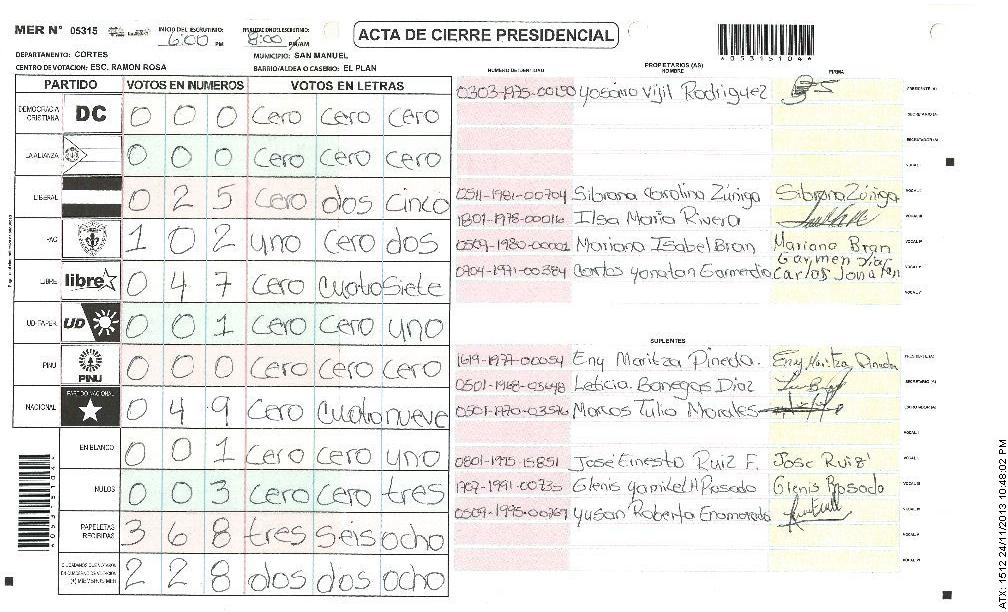 MER N° 05315 INICIO DEL ESCRUTINIO: 6:00 PM FINALIZACION DEL ESCRUTINIO: 8:00 PM/AM
ACTA DE CIERRE PRESIDENCIAL
*05315104*
DEPARTAMENTO: CORTES MUNICIPIO: SAN MANUEL
CENTRO DE VOTACION: ESC. RAMON ROSA BARRIO/ALDEA O CASERIO: EL PLAN
PARTIDO VOTOS EN NUMEROS VOTOS EN LETRAS
DEMOCRACIA CRISTIANA DC 0 0 0 Cero Cero Cero
LA ALIANZA 0 0 0 Cero Cero Cero
LIBERAL 0 2 5 Cero dos cinco
PAC 1 0 2 uno Cero dos
LIBRE libre 0 4 7 Cero cuatro siete
UD-FAPER UD 0 0 1 Cero Cero uno
PINU PINU 0 0 0 Cero Cero Cero
NACIONAL PARTIDO NACIONAL 0 4 9 Cero cuatro nueve
EN BLANCO 0 0 1 Cero Cero uno
NULOS 0 0 3 Cero Cero tres
PAPELETAS RECIBIDAS 3 6 8 tres seis ocho
2 2 8 dos dos ocho
PROPIETARIOS (AS)
NUMERO DE IDENTIDAD NOMBRE FIRMA
0303-1975-00150 Yosano Vijil Rodriguez PRESIDENTE (A)
SECRETARIO (A)
ESCRUTADOR (A)
VOCAL I
0511-1981-00704 Sibrana Carolina Zúniga Sibrana Zúniga
1807-1978-000116 Ilsa Maria Rivera
0509-1980-00002 Mariana Isabel Bran Mariana Bran
0904-1971-00384 Carlos Yonatan Carlos Jonatan
SUPLENTES
1619-1977-00054 Eny Maritza Pineda. Eny Maritza Pineda
0501-1968-05648 Leticia Banegas Diaz SECRETARIO (A)
0501-1970-03576 Marcos Tulio Morales
VOCAL I
0801-1995-15851 José Ernesto Ruiz F. Jose Ruiz
1907-1991-00735 Glenis Yamileth Rosado Glenis Rosado
0509-1995-00769 Yusan Roberta Enamorado
*05315104*
ATX: 1512 24/11/2013 10:48:02 PM